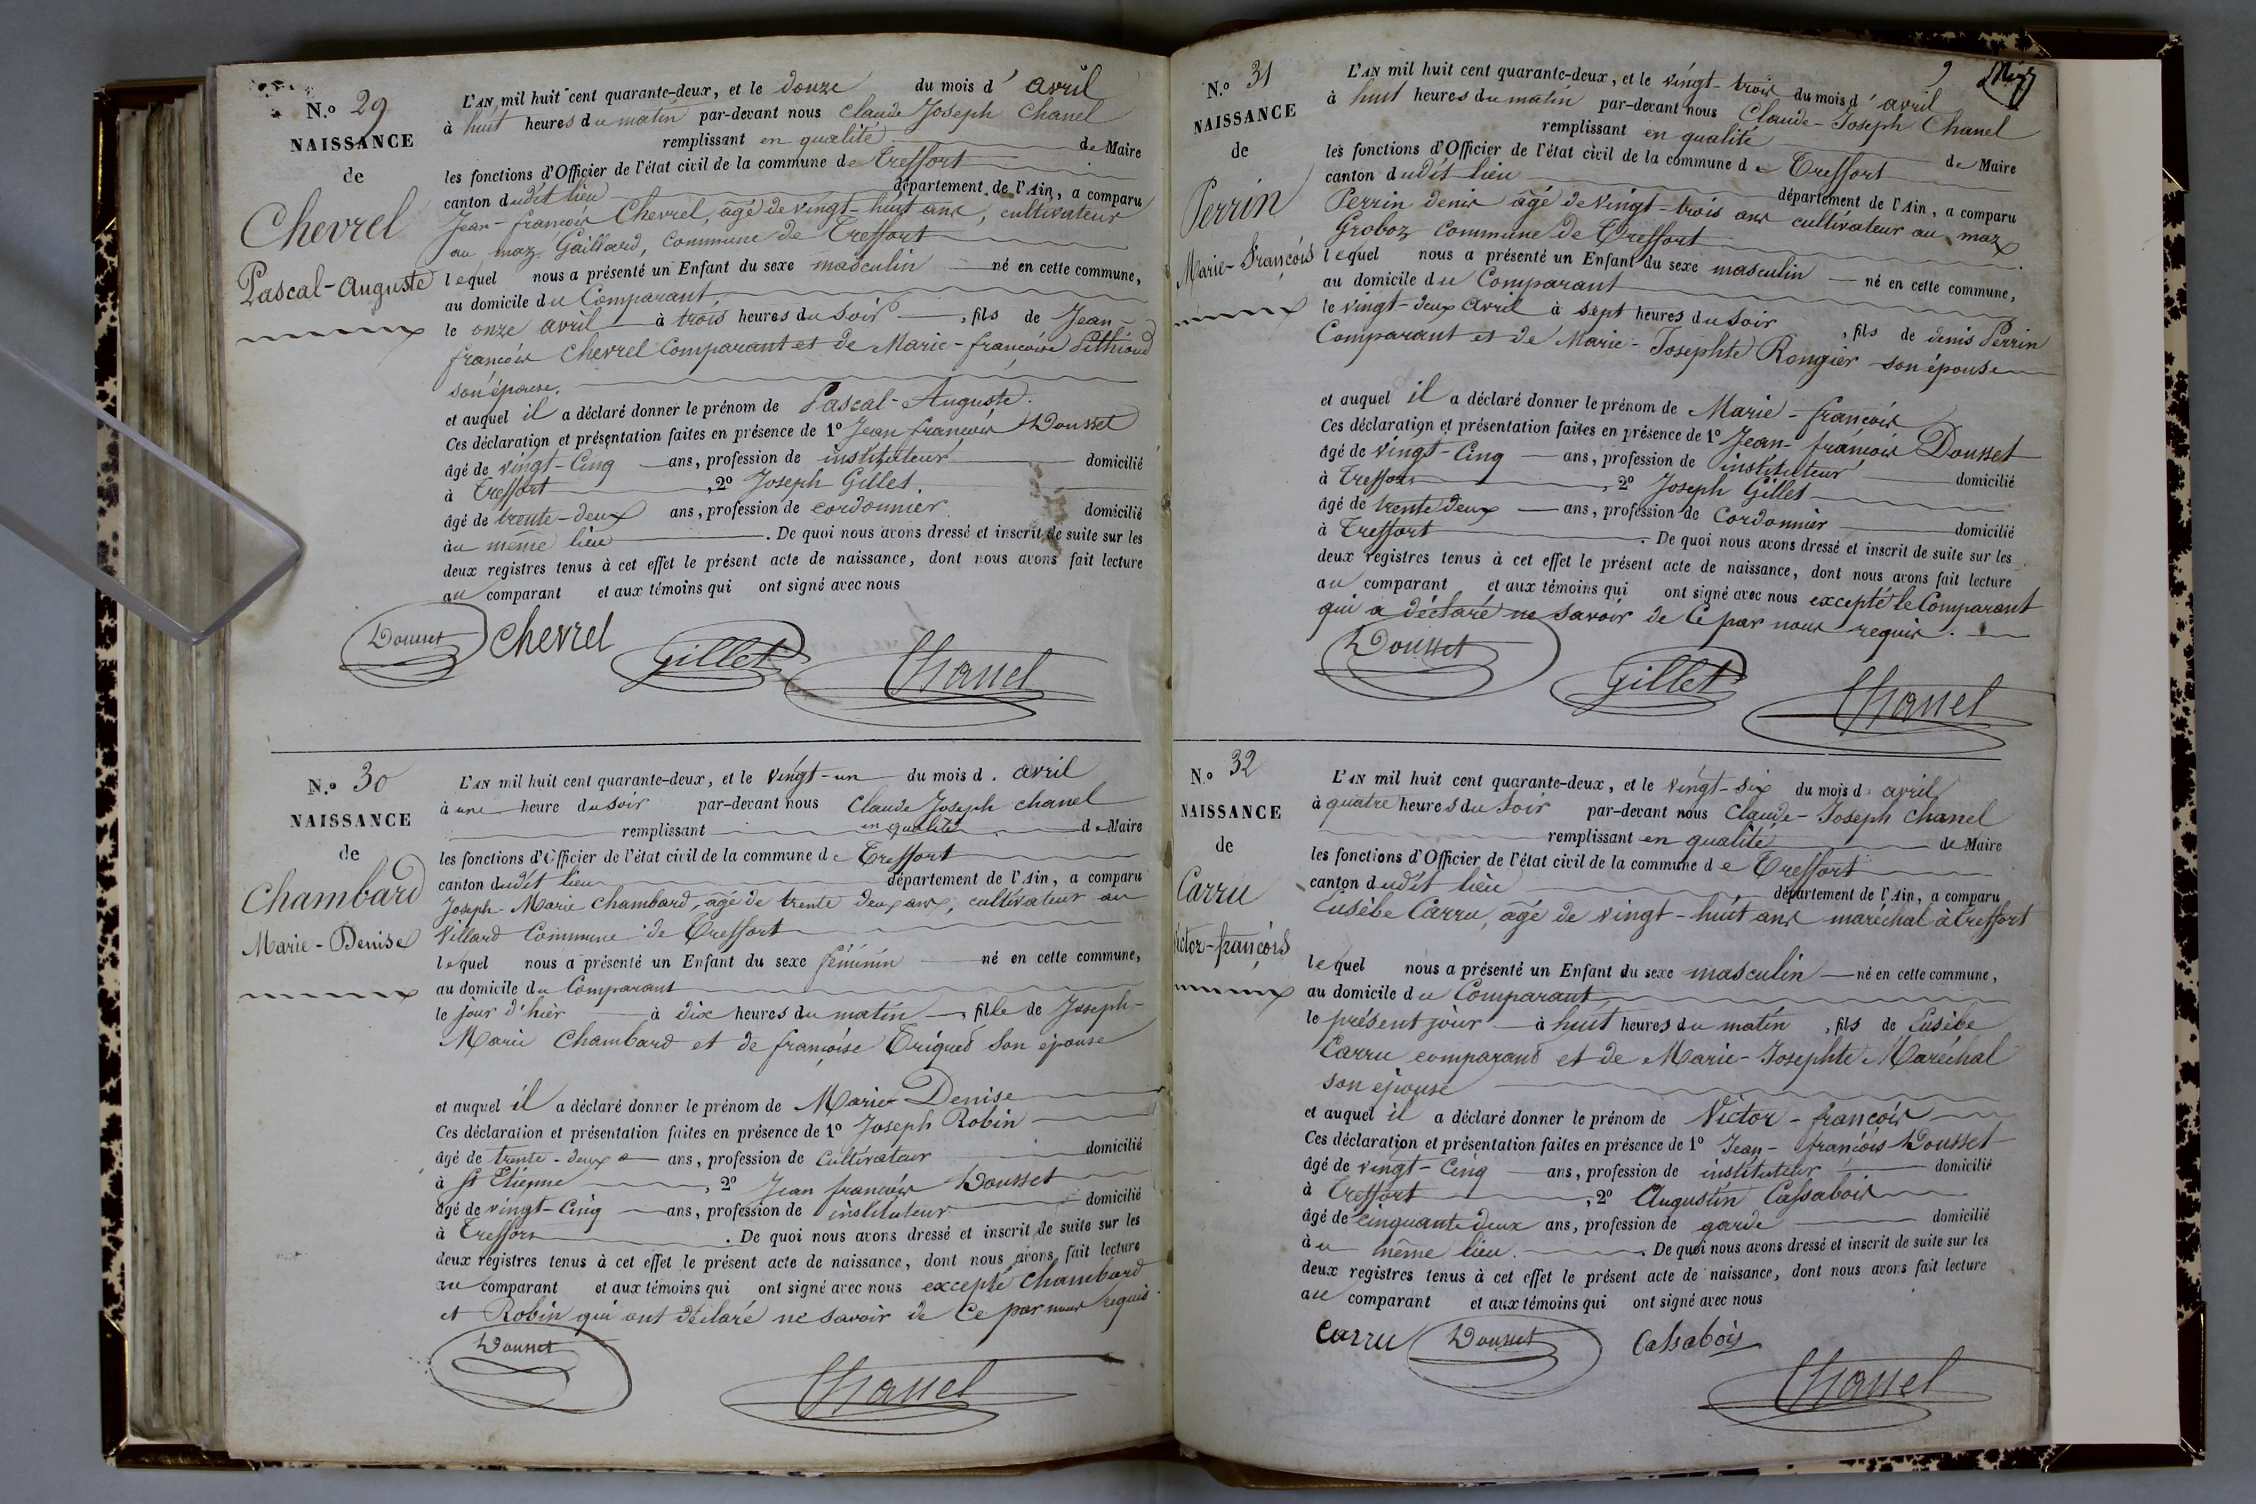 N.º 29
NAISSANCE
de
Chevrel
Pascal-Auguste
L'AN mil huit cent quarante-deux, et le douze du mois d' avril
à huit heures du matin par-devant nous Claude Joseph Chanel
remplissant en qualité de Maire
les fonctions d'Officier de l'état civil de la commune de Treffort
canton dudit lieu département de l'Ain, a comparu
Jean-francois Chevrel, agé de vingt-huit ans, cultivateur
au maz Gaillard, commune de Treffort
lequel nous a présenté un Enfant du sexe masculin né en cette commune,
au domicile du Comparant
le onze avril à trois heures du soir, fils de Jean-
francois Chevrel Comparant et de Marie-francoise
son épouse.
et auquel il a déclaré donner le prénom de Pascal-Auguste.
Ces déclaration et présentation faites en présence de 1º Jean francois Dousset
âgé de vingt-Cinq ans, profession de instituteur domicilié
à Treffort, 2º Joseph Gillet.
âgé de trente-deux ans, profession de cordonnier domicilié
au même lieu. De quoi nous avons dressé et inscrit de suite sur les
deux registres tenus à cet effet le présent acte de naissance, dont nous avons fait lecture
au comparant et aux témoins qui ont signé avec nous
Dousset Chevrel Gillet Chanel
N.º 30
NAISSANCE
de
Chambard
Marie-Denise
L'AN mil huit cent quarante-deux, et le vingt-un du mois d. avril
à une heure du soir par-devant nous Claude Joseph chanel
remplissant en qualité de Maire
les fonctions d'Officier de l'état civil de la commune de Treffort
canton dudit lieu département de l'Ain, a comparu
Joseph-Marie Chambard, agé de trente deux ans, cultivateur au
Villard Commune de Treffort
lequel nous a présenté un Enfant du sexe féminin né en cette commune,
au domicile du Comparant
le jour d'hier à dix heures du matin, fille de Joseph-
Marie Chambard et de françoise Triqued son épouse
et auquel il a déclaré donner le prénom de Marie Denise
Ces déclaration et présentation faites en présence de 1º Joseph Robin
âgé de trente-deux ans, profession de Cultivateur domicilié
à St Etienne, 2º Jean francois Dousset
âgé de vingt-Cinq ans, profession de instituteur domicilié
à Treffort. De quoi nous avons dressé et inscrit de suite sur les
deux registres tenus à cet effet le présent acte de naissance, dont nous avons fait lecture
au comparant et aux témoins qui ont signé avec nous excepté Chambard
et Robin qui ont déclaré ne savoir de Ce par nous requis.
Dousset Chanel
9
N.º 31
NAISSANCE
de
Perrin
Marie-François
L'AN mil huit cent quarante-deux, et le vingt-trois du mois d' avril
à huit heures du matin par-devant nous Claude-Joseph Chanel
remplissant en qualité de Maire
les fonctions d'Officier de l'état civil de la commune de Treffort
canton dudit lieu département de l'Ain, a comparu
Perrin denis agé de vingt-trois ans cultivateur au maz
Groboz Commune de Treffort
lequel nous a présenté un Enfant du sexe masculin né en cette commune,
au domicile du Comparant
le vingt-deux avril à sept heures du soir, fils de denis Perrin
Comparant et de Marie-Josephte Rongier son épouse
et auquel il a déclaré donner le prénom de Marie-francois
Ces déclaration et présentation faites en présence de 1º Jean-francois Dousset
âgé de vingt-Cinq ans, profession de instituteur domicilié
à Treffort, 2º Joseph Gillet
âgé de trente deux ans, profession de Cordonnier domicilié
à Treffort. De quoi nous avons dressé et inscrit de suite sur les
deux registres tenus à cet effet le présent acte de naissance, dont nous avons fait lecture
au comparant et aux témoins qui ont signé avec nous excepté le Comparant
qui a déclaré ne savoir de Ce par nous requis.
Dousset Gillet Chanel
N.º 32
NAISSANCE
de
Carru
Victor-françois
L'AN mil huit cent quarante-deux, et le vingt-six du mois d. avril
à quatre heures du soir par-devant nous Claude-Joseph Chanel
remplissant en qualité de Maire
les fonctions d'Officier de l'état civil de la commune de Treffort
canton dudit lieu département de l'Ain, a comparu
Eusèbe Carru, agé de vingt-huit ans maréchal à Treffort
lequel nous a présenté un Enfant du sexe masculin né en cette commune,
au domicile du Comparant
le présent jour à huit heures du matin, fils de Eusèbe
Carru comparant et de Marie-Josephte Maréchal
son épouse
et auquel il a déclaré donner le prénom de Victor-francois
Ces déclaration et présentation faites en présence de 1º Jean-francois Dousset
âgé de vingt-Cinq ans, profession de instituteur domicilié
à Treffort, 2º Augustin Cassabois
âgé de cinquante deux ans, profession de garde domicilié
au même lieu. De quoi nous avons dressé et inscrit de suite sur les
deux registres tenus à cet effet le présent acte de naissance, dont nous avons fait lecture
au comparant et aux témoins qui ont signé avec nous
Carru Dousset Cassabois
Chanel